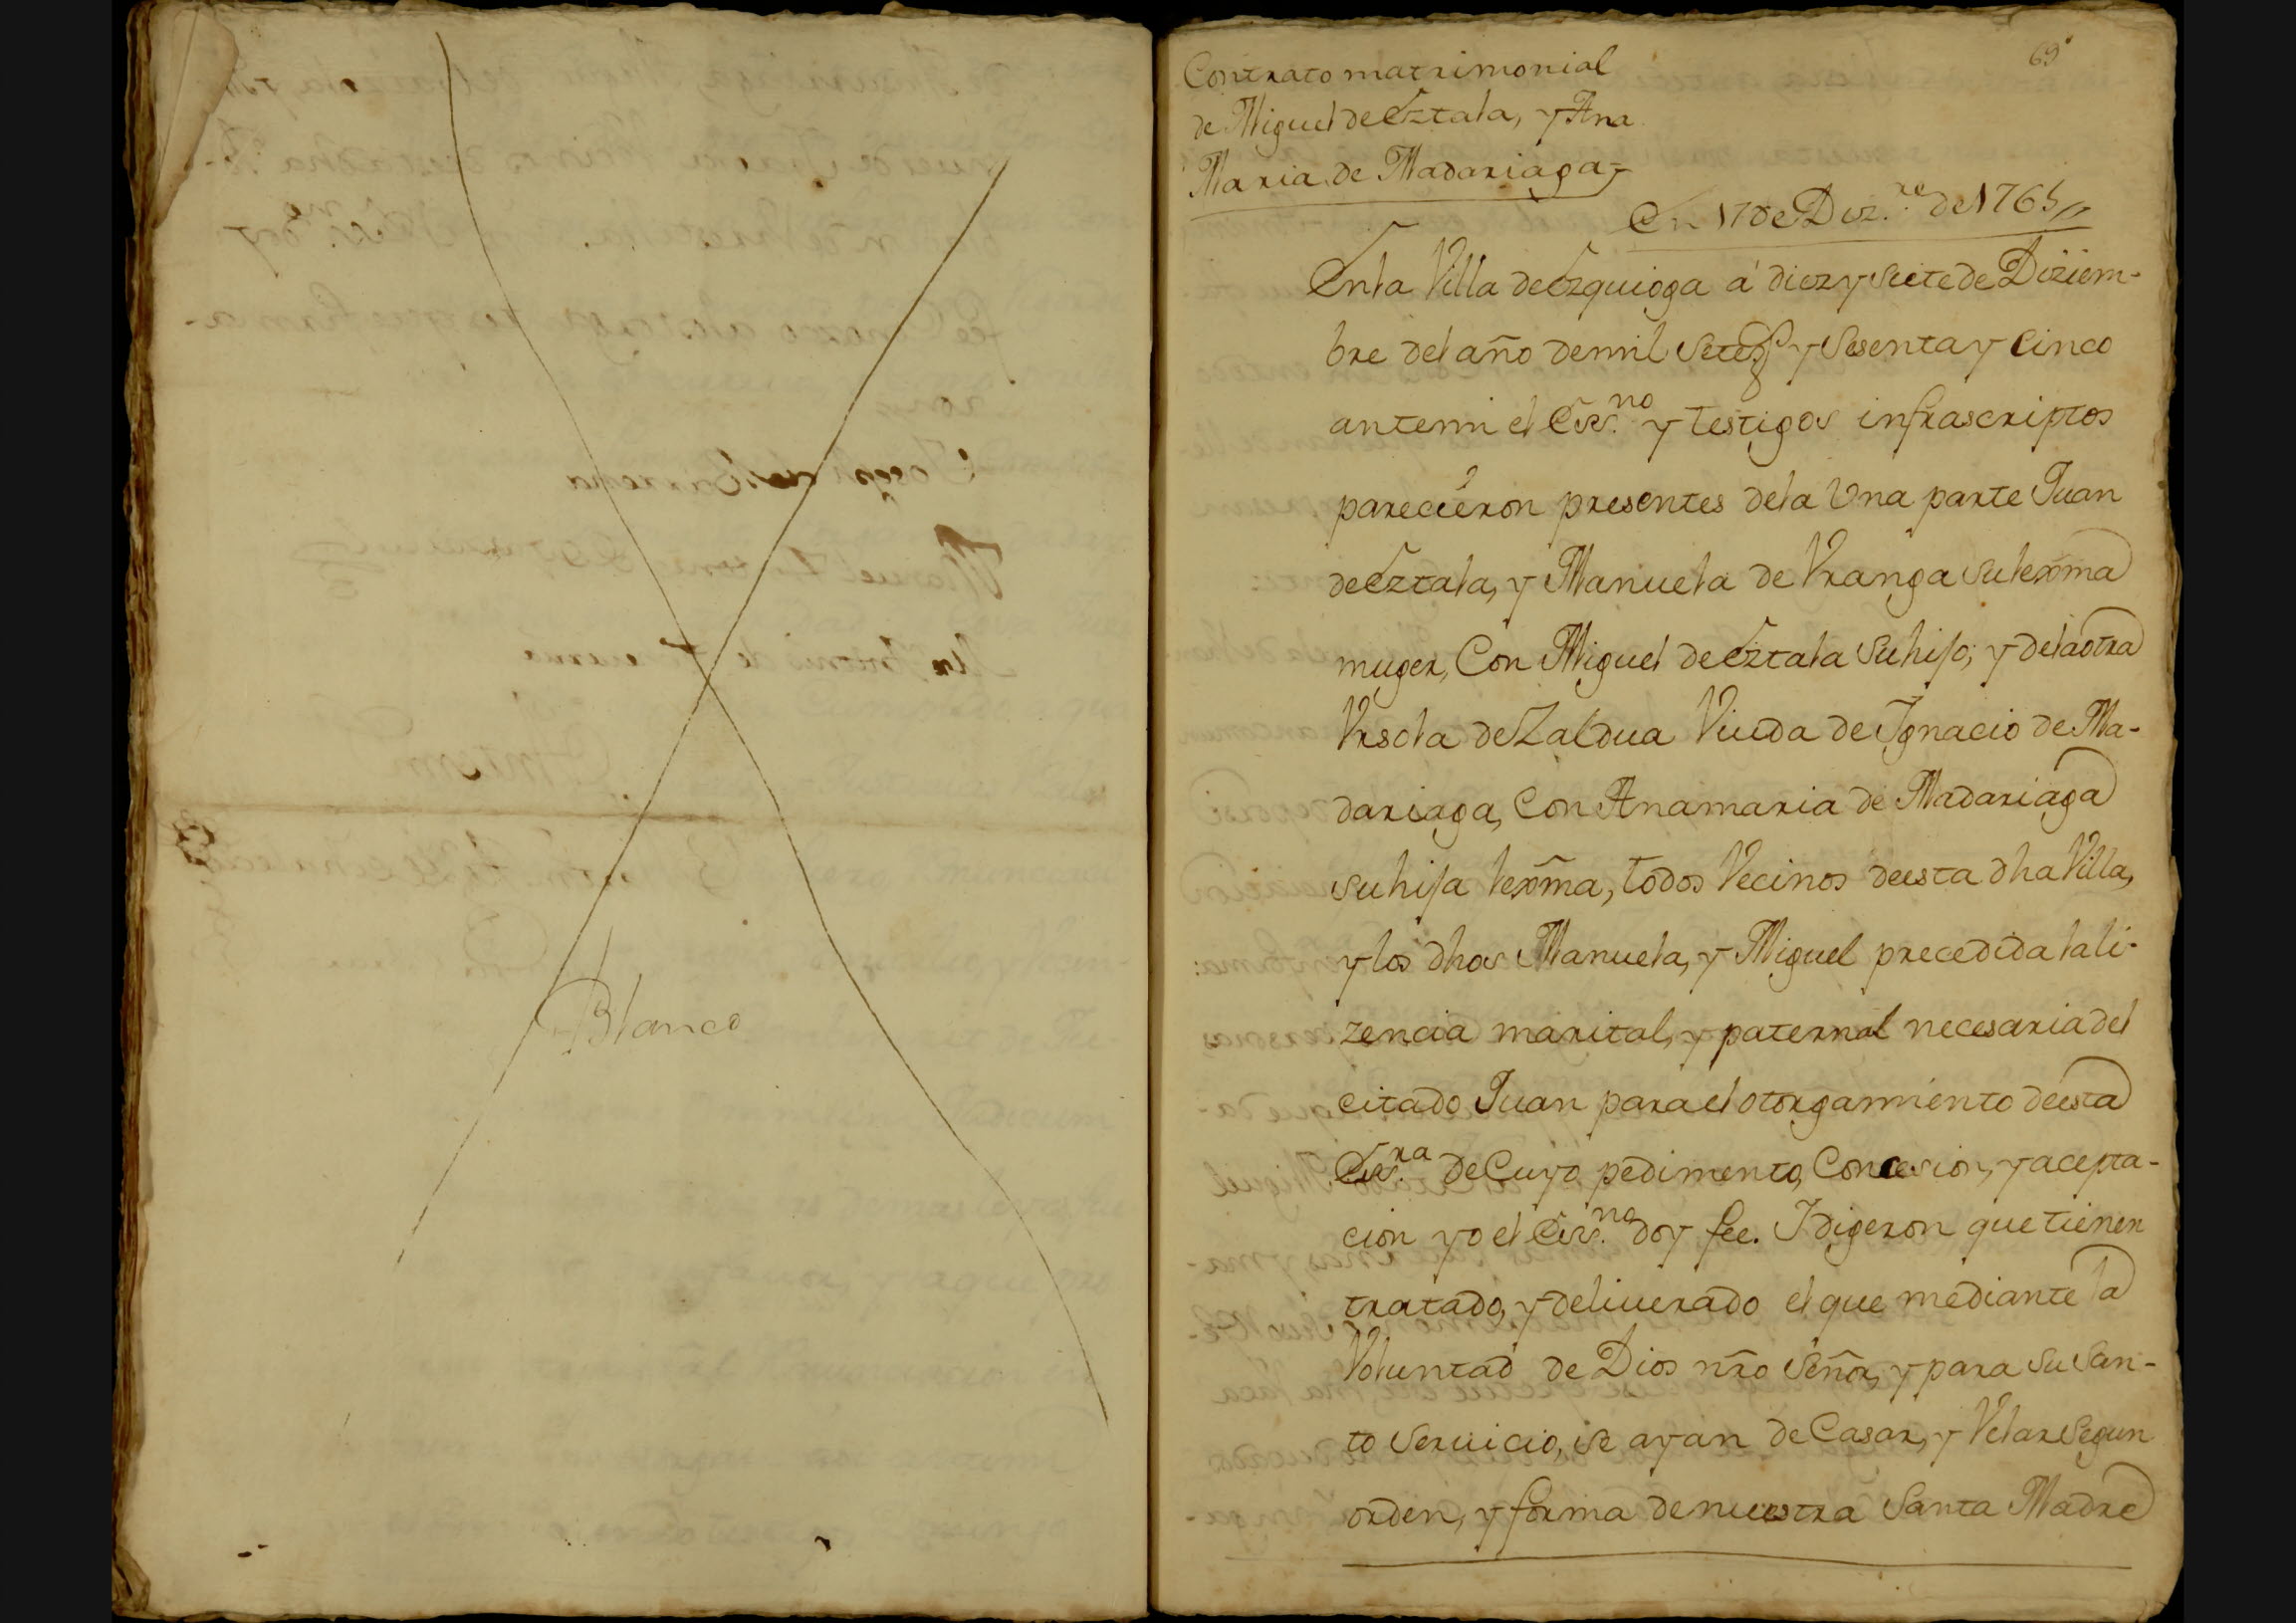 Blanco
69
Contrato matrimonial
de Miguel de Eztala, y Ana
Maria de Madariaga,
En 17 de Diz.re de 1765
Enla Villa de Ezquioga a diez y siete de Diziem-
bre del año de mil Setezs y Sesenta y Cinco
antemi el Ess.no y testigos infrascriptos
parecieron presentes dela Una parte Juan
de Eztala, y Manuela de Vranga su lexma
muger, Con Miguel de Eztala Su hijo; y dela otra
Vrsola de Zaldua Viuda de Ignacio de Ma-
dariaga, Con Anamaria de Madariaga
su hija lexma, todos Vecinos deesta dha Villa,
y los dhos Manuela, y Miguel precedida la li-
zencia marital, y paternal necesaria del
citado Juan para el otorgamiento deesta
Ess.ra de Cuyo pedimento, Concesion, y acepta-
cion yo el Ess.no doy fee. I digeron que tienen
tratado, y deliuerado el que mediante la
Voluntad de Dios nro Señor, y para su San-
to Seruicio, se ayan de Casar, y Velar Segun
orden, y forma de nuestra Santa Madre